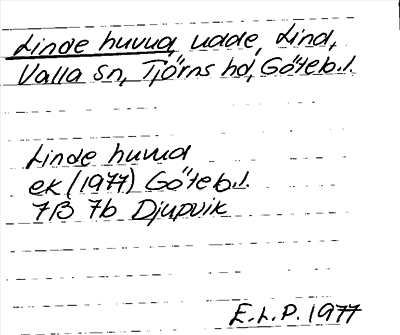 Linde huvud, udde, Lind,
Valla sn, Tjörns hd, Göteb.l.
Linde huvud
ek (1977) Göteb.l.
7B 7b Djupvik
E.L.P. 1977